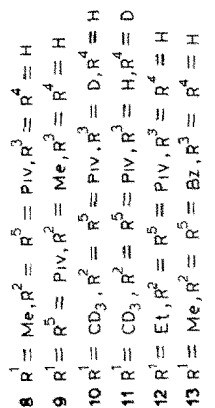 8 R¹ = Me, R² = R⁵ = Piv, R³ = R⁴ = H
9 R¹ = R⁵ = Piv, R² = Me, R³ = R⁴ = H
10 R¹ = CD₃, R² = R⁵ = Piv, R³ = D, R⁴ = H
11 R¹ = CD₃, R² = R⁵ = Piv, R³ = H, R⁴ = D
12 R¹ = Et, R² = R⁵ = Piv, R³ = R⁴ = H
13 R¹ = Me, R² = R⁵ = Bz, R³ = R⁴ = H